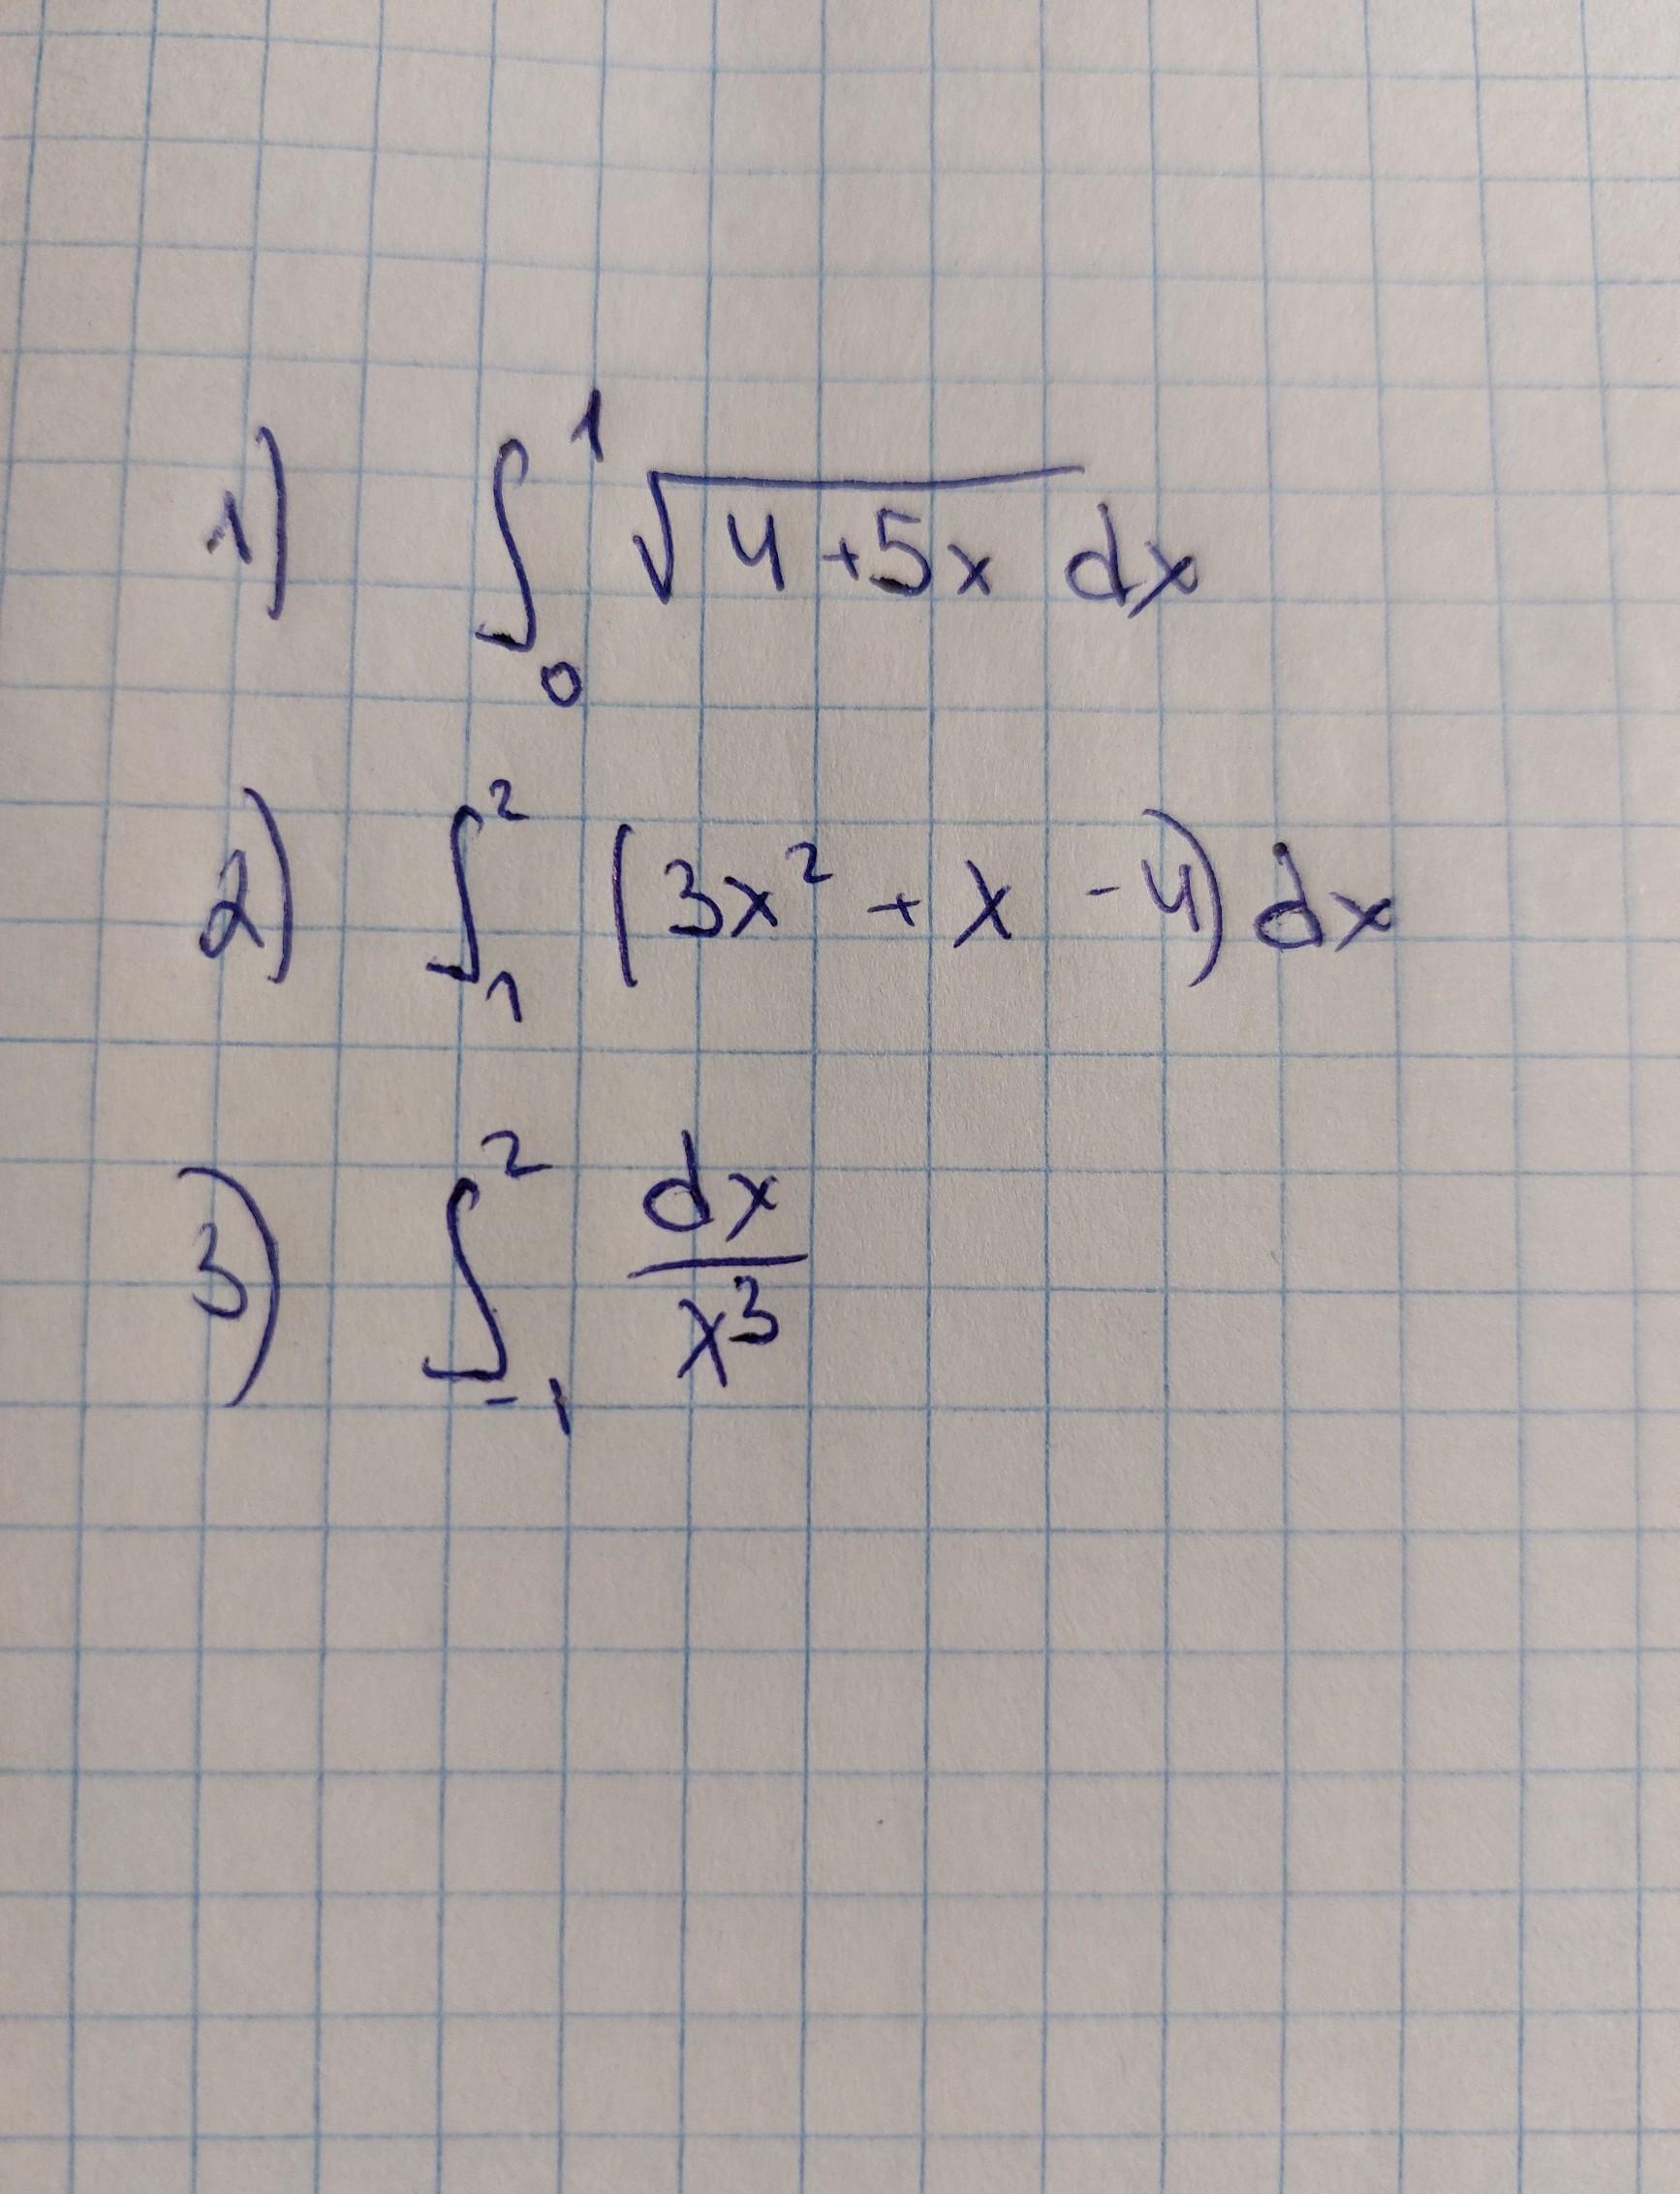 1) ∫₀¹ √(4+5x) dx
2) ∫₁² (3x² + x - 4) dx
3) ∫₋₁² dx/x³